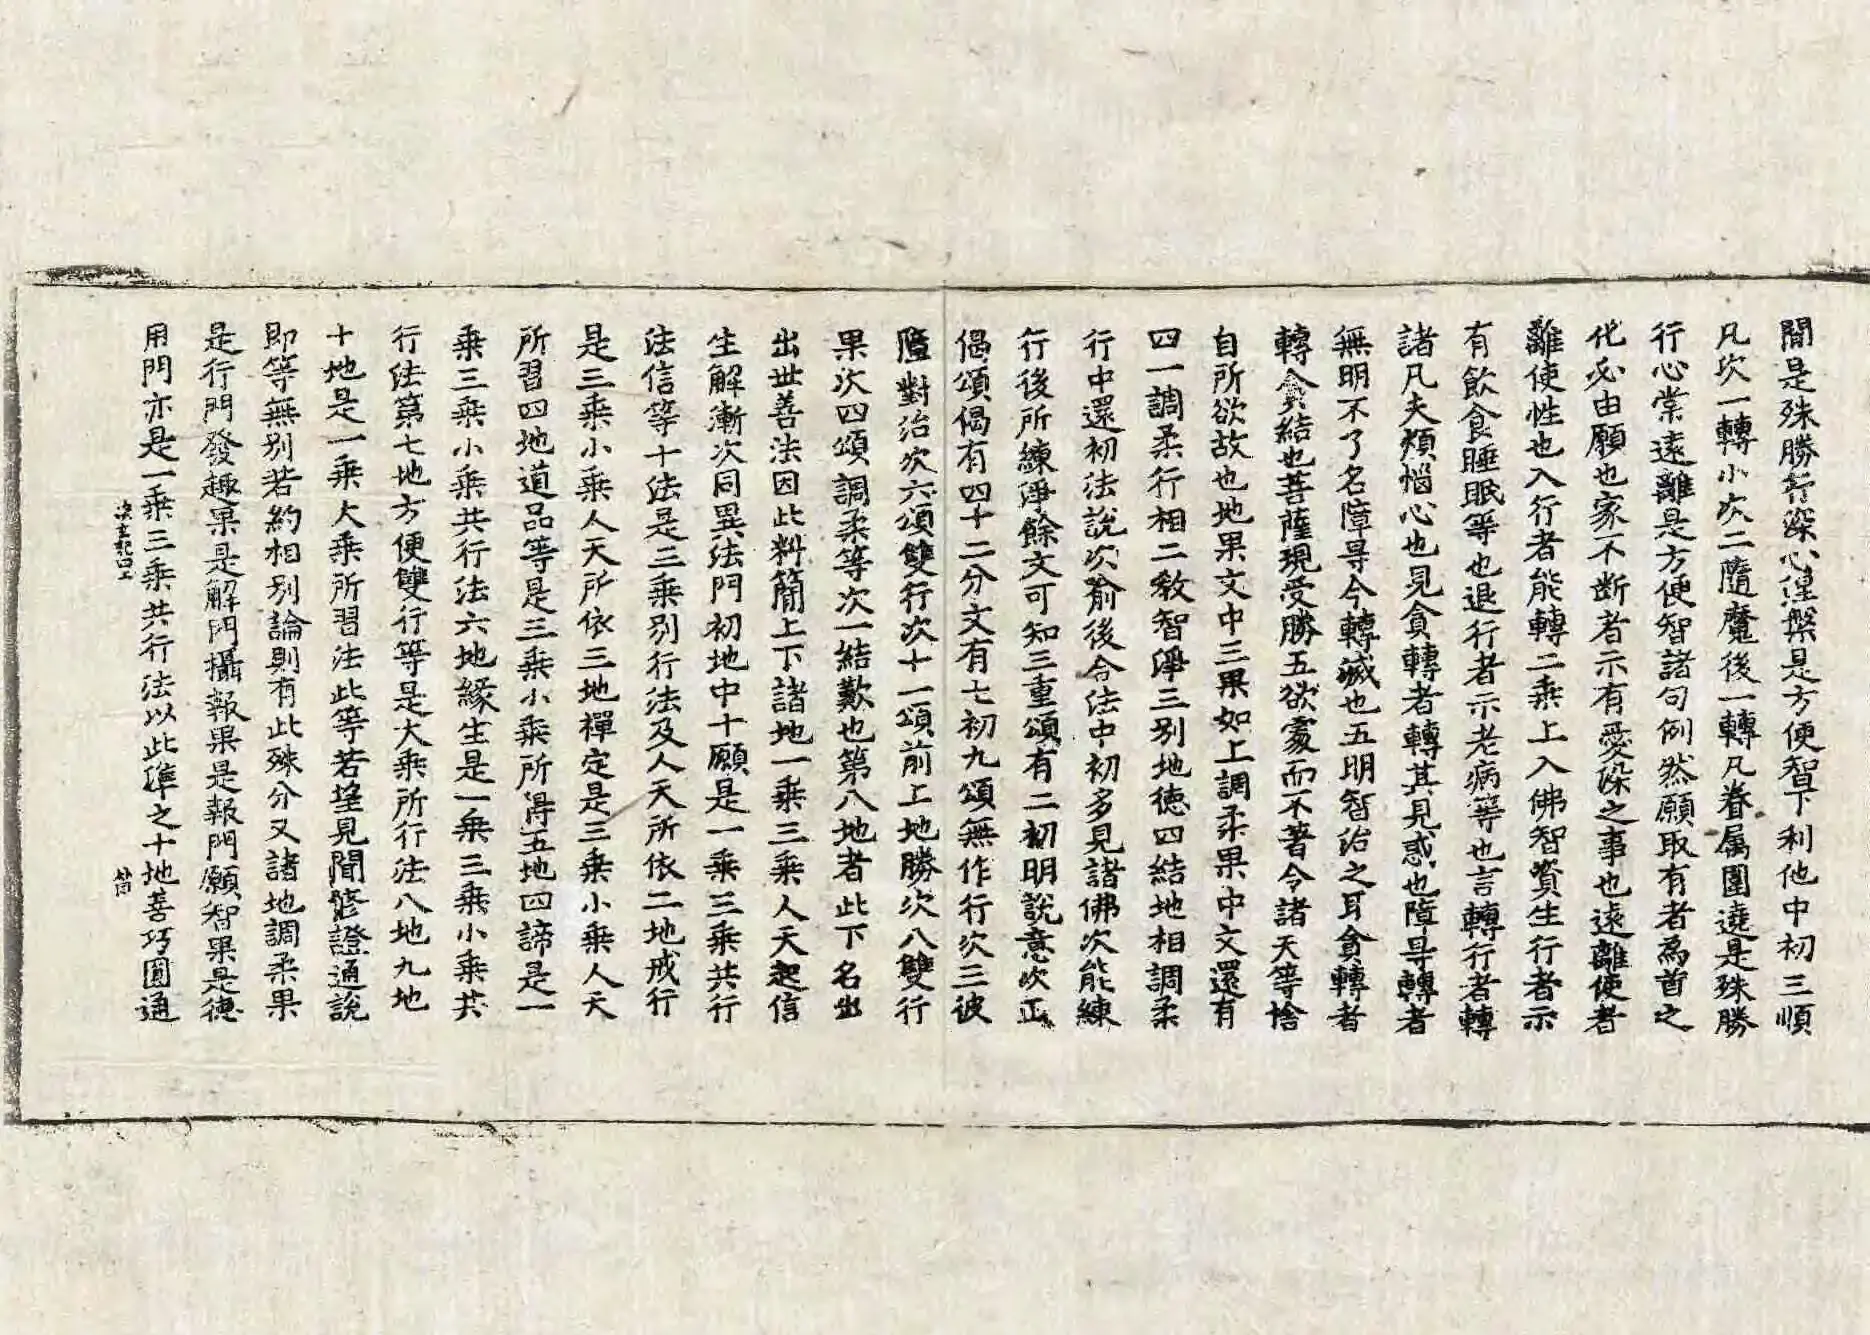 間是殊勝行深心涅槃是方便智下利他中初三順
凡次一轉小次二隨魔後一轉凡眷属圍遶是殊勝
行心常遠離是方便智諸句例然願取有者為首之
化必由願也家不断者示有愛染之事也遠離使者
離使性也入行者能轉二乘上入佛智資生行者示
有飲食睡眠等也退行者示老病等也言轉行者轉
諸凡夫煩惱心也見貪轉者轉其見惑也障导轉者
無明不了名障导今轉滅也五明智治之耳貪轉者
轉貪結也菩薩現受勝五欲處而不著令諸天等捨
自所欲故也地果文中三果如上調柔果中文還有
四一調柔行相二教智淨三别地德四結地相調柔
行中還初法説次喻後合法中初多見諸佛次能練
行後所練淨餘文可知三重頌有二初明說意次正
偈頌偈有四十二分文有七初九頌無作行次三彼
障對治次六頌雙行次十一頌前上地勝次八雙行
果次四頌調柔等次一結歎也第八地者此下名出
出世善法因此料簡上下諸地一乘三乘人天起信
生解漸次同異法門初地中十願是一乘三乘共行
法信等十法是三乘别行法及人天所依二地戒行
是三乘小乘人天所依三地禪定是三乘小乘人天
所習四地道品等是三乘小乘所得五地四諦是一
乘三乘小乘共行法六地緣生是一乘三乘小乘共
行法第七地方便雙行等是大乘所行法八地九地
十地是一乘大乘所習法此等若望見聞修證通說
即等無别若約相别論則有此殊分又諸地調柔果
是行門發趣果是解門攝報果是報門願智果是德
用門亦是一乘三乘共行法以此準之十地善巧圓通